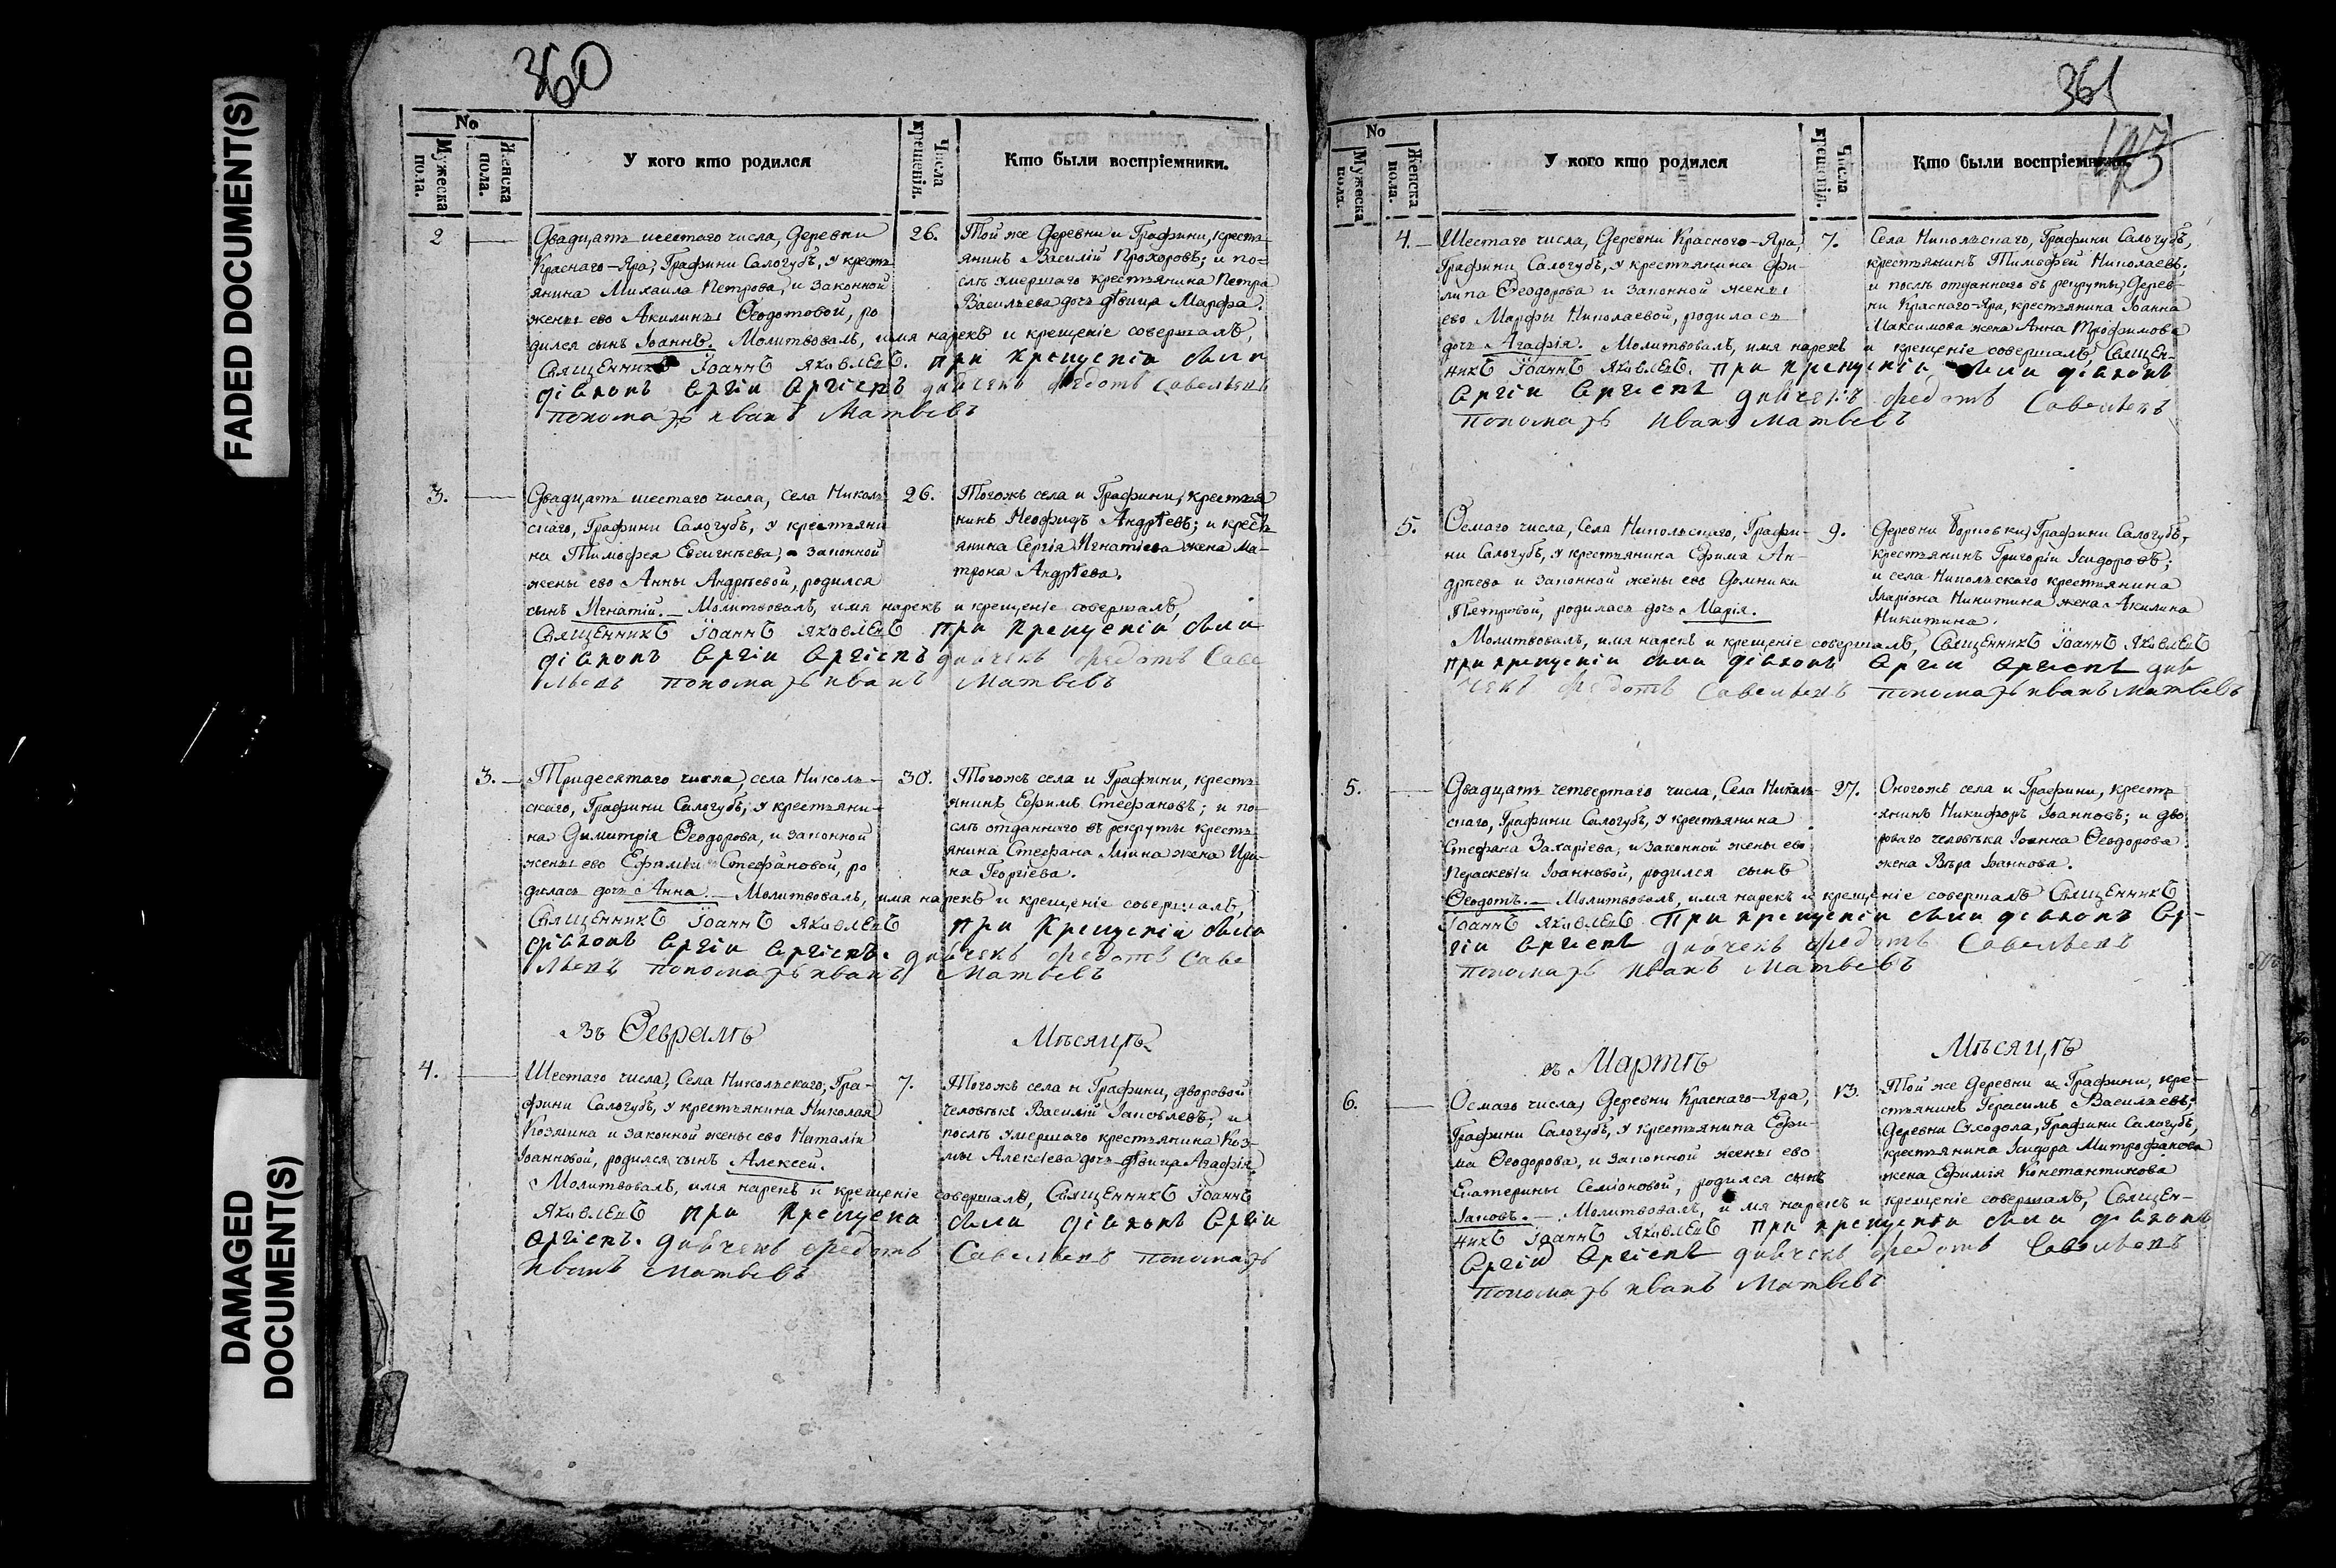 FADED DOCUMENT(S)
DAMAGED
DOCUMENT(S)
360
No
Мужеска пола.
Женска пола.
У кого кто родился
Числа крещенія.
Кто были воспріемники.
2
Двадцать шестаго числа, Деревни
Краснаго-Яра, Графини Салогубъ, у кресть
янина Михаила Петрова, и законной
жены ево Акилины Ѳеодотовой, ро
дился сынъ Іоаннъ. Молитвовалъ, имя нарекъ и крещеніе совершалъ,
Священникъ Іоаннъ Яковлевъ. При крещеніи были
діаконъ
дьячекъ Федотъ Савельевъ
пономарь Иванъ Матвеевъ
26.
Той же Деревни и Графини, кресть
янинъ Василій Прохоровъ; и по=
слѣ умершаго крестьянина Петра
Васильева дочь дѣвица Марфа.
3.
Двадцать шестаго числа, села Николь
скаго, Графини Салогубъ, у крестьяни
на Тимофея Евсигнѣева, и законной
жены ево Анны Андрѣевой, родился
сынъ Игнатій. – Молитвовалъ, имя нарекъ и крещеніе совершалъ,
Священникъ Іоаннъ Яковлевъ При крещеніи были
діаконъ
дьячекъ Федотъ Саве
льевъ пономарь Иванъ Матвеевъ
26.
Тогожъ села и Графини, крестья
нинъ Неофидъ Андрѣевъ; и кресть
янина Сергія Игнатіева жена Ма-
трона Андрѣева.
3.
Тридесятаго числа, села Николь-
скаго, Графини Салогубъ, у крестьяни-
на Димитрія Ѳеодорова, и законной
жены ево Ефиміи Стефановой, ро
дилась дочь Анна. – Молитвовалъ, имя нарекъ и крещеніе совершалъ,
Священникъ Іоаннъ Яковлевъ При крещеніи были
діаконъ
дьячекъ Федотъ Саве
льевъ пономарь Иванъ Матвеевъ
30.
Тогожъ села и Графини, кресть
янинъ Ефимъ Стефановъ; и по-
слѣ отданнаго въ рекруты кресть
янина Стефана Иліина жена Ири-
на Георгіева.
Въ Февралѣ Мѣсяцѣ
4.
Шестаго числа, Села Никольскаго, Гра-
фини Салогубъ, у крестьянина Николая
Козмина и законной жены ево Наталіи
Іоанновой, родился сынъ Алексей.
Молитвовалъ, имя нарекъ и крещеніе совершалъ, Священникъ Іоаннъ
Яковлевъ При крещени были діаконъ
дьячекъ Федотъ Савельевъ пономарь
Иванъ Матвеевъ
7.
Тогожъ села и Графини, дворовой
человѣкъ Василій Іаковлевъ; и
послѣ умершаго крестьянина Коз-
мы Алексіева дочь дѣвица Агафія
361
No
Мужеска пола.
Женска пола.
У кого кто родился
Числа крещенія.
Кто были воспріемники.
4.
Шестаго числа, Деревни Краснаго-Яра,
Графини Салогубъ, у крестьянина Фи-
липа Ѳеодорова и законной жены
ево Марфы Николаевой, родилась
дочь Агафія. Молитвовалъ, имя нарекъ и крещеніе совершалъ, Священ-
никъ Іоаннъ Яковлевъ. При крещеніи были діаконъ
дьячекъ Федотъ Савельевъ
пономарь Иванъ Матвеевъ
7.
Села Никольскаго, Графини Салогубъ,
крестьянинъ Тимофей Николаевъ;
и послѣ отданнаго въ рекруты, Дерев-
ни Краснаго-Яра, крестьянина Іоанна
Максимова жена Анна Трофимова
5.
Осмаго числа, Села Никольскаго, Графи-
ни Салогубъ, у крестьянина Ефима Ан-
дрѣева и законной жены ево Домники
Петровой, родилась дочь Марія.
Молитвовалъ, имя нарекъ и крещеніе совершалъ, Священникъ Іоаннъ Яковлевъ
При крещеніи были діаконъ дья
чекъ Федотъ Савельевъ пономарь Иванъ Матвеевъ
9.
Деревни Графини Салогубъ,
крестьянинъ Григорій Исидоровъ;
и села Никольскаго крестьянина
Иларіона Никитина жена Акилина
Никитина.
5.
Двадцать четвертаго числа, Села Николь-
скаго, Графини Салогубъ, у крестьянина
Стефана Захаріева, и законной жены ево
Пераскевіи Іоанновой, родился сынъ
Ѳеодотъ. – Молитвовалъ, имя нарекъ и крещеніе совершалъ Священникъ
Іоаннъ Яковлевъ При крещеніи были діаконъ
дьячекъ Федотъ Савельевъ
пономарь Иванъ Матвеевъ
27.
Оногожъ села и Графини, кресть
янинъ Никифоръ Іоанновъ; и дво
роваго человѣка Іоанна Ѳеодорова
жена Вѣра Іоаннова.
въ Мартѣ Мѣсяцѣ
6.
Осмаго числа, Деревни Краснаго-Яра,
Графини Салогубъ, у крестьянина Ефи-
ма Ѳеодорова, и законной жены ево
Екатерины Семіоновой, родился сынъ
Іаковъ. – Молитвовалъ, имя нарекъ и крещеніе совершалъ, Священ-
никъ Іоаннъ Яковлевъ При крещеніи были діаконъ
дьячекъ Федотъ Савельевъ
пономарь Иванъ Матвеевъ
13.
Той же Деревни и Графини, кре-
стьянинъ Герасимъ Васильевъ;
Деревни Суходола, Графини Салогубъ,
крестьянина Исидора Митрофанова
жена Ефимія Константинова